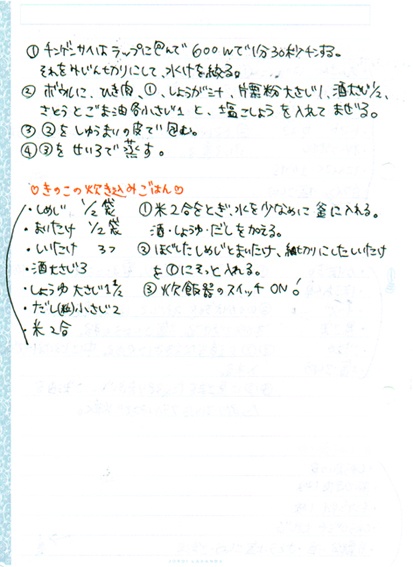 ① チンゲンサイはラップに包んで600Wで1分30秒チンする。
それをみじん切りにして、水けを絞る。
② ボウルに、ひき肉、①、しょうがミニ、片栗粉大さじ1、酒大さじ1/2、
さとうとごま油各小さじ1と、塩こしょうを入れてまぜる。
③ ②をしゅうまいの皮で包む。
④ ③をせいろで蒸す。
♡きのこの炊き込みごはん♡
・しめじ 1/2袋
・まいたけ 1/2袋
・しいたけ 3つ
・酒大さじ3
・しょうゆ大さじ1 1/2
・だし(粉)小さじ2
・米2合
①米2合をとぎ、水を少なめに釜に入れる。
酒・しょうゆ・だしを加える。
②ほぐしたしめじとまいたけ、細切りにしたしいたけ
を①にそっと入れる。
③炊飯器のスイッチON!